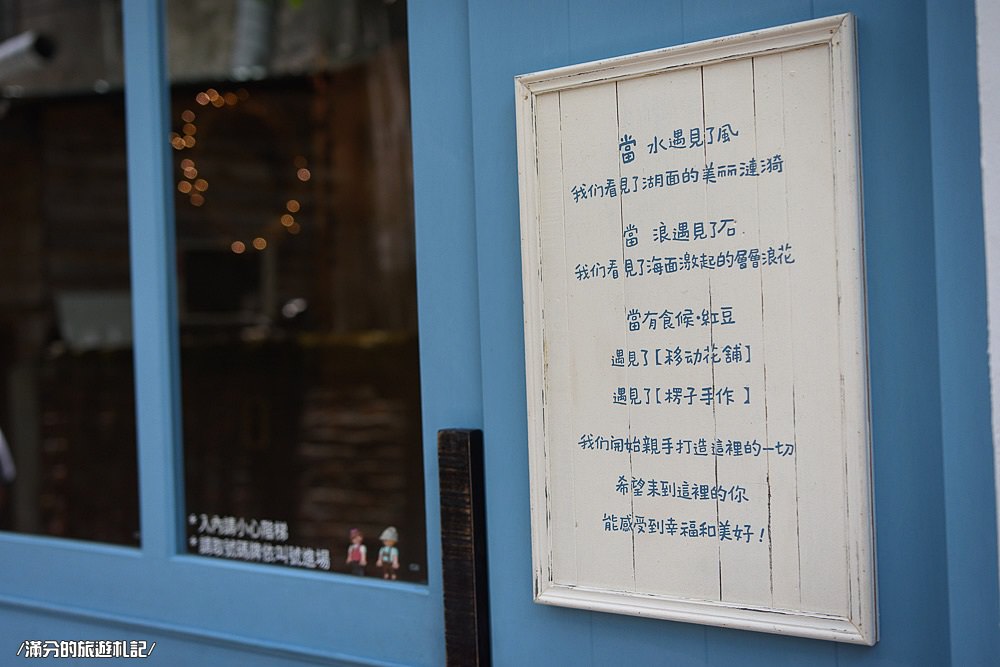 當 水遇見了風
我们看見了湖面的美丽漣漪
當 浪遇見了石.
我们看見了海面激起的層層浪花
當有食候·紅豆
遇見了[移动花舖]
遇見了[楞子手作]
我们開始親手打造這裡的一切
希望来到這裡的你
能感受到幸福和美好！
* 入內請小心階梯
* 請取號碼牌依叫號進場
/滿分的旅遊札記/